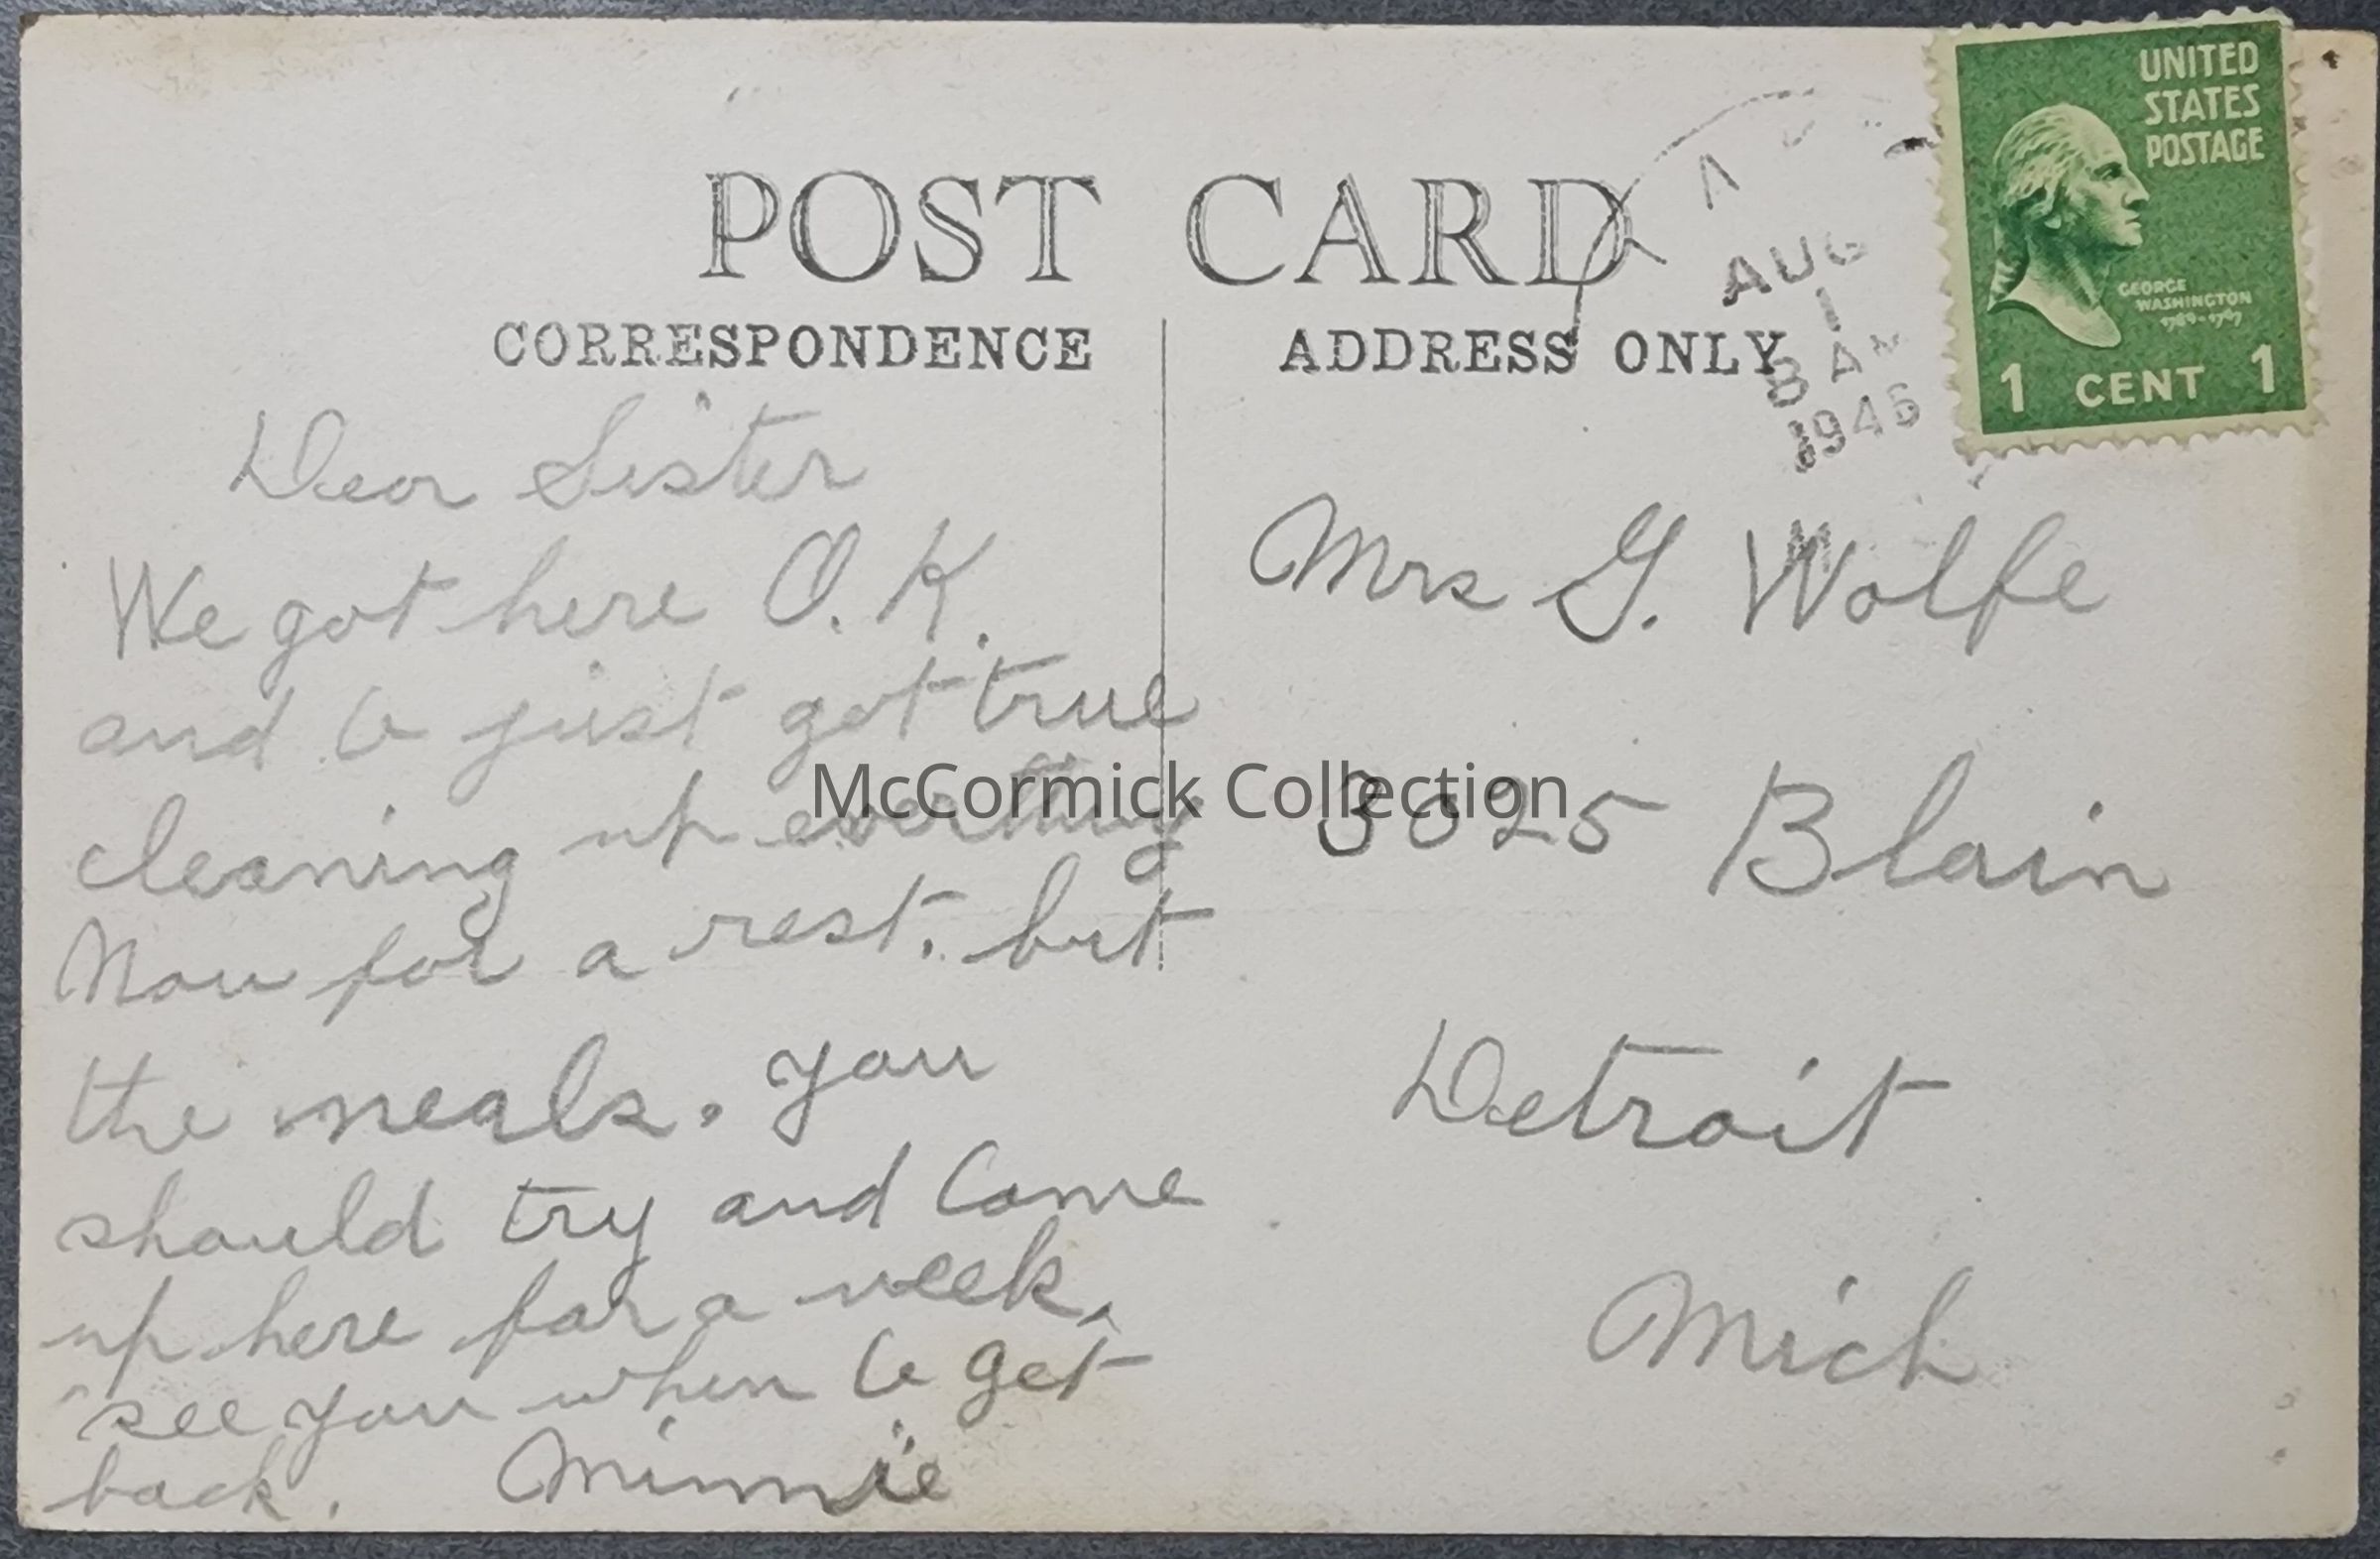 POST CARD
CORRESPONDENCE
Dear Sister
We got here O.K.
and I just got true
cleaning up everthing
Now for a rest. but
the meals. you
should try and Come
up here for a week.
see you when I get
back. Minnie
ADDRESS ONLY
AUG
1
AM
1946
UNITED
STATES
POSTAGE
GEORGE
WASHINGTON
1789-1797
1 CENT 1
Mrs G. Wolfe
3025 Blain
Detroit
Mich
McCormick Collection